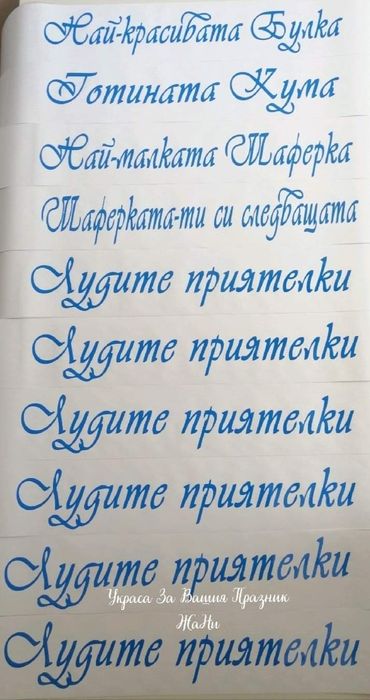 Най-красивата Булка
Готината Кума
Най-малката Шаферка
Шаферката-ти си следващата
Лудите приятелки
Лудите приятелки
Лудите приятелки
Лудите приятелки
Лудите приятелки
Украса За Вашия Празник
ЖаНи
Лудите приятелки